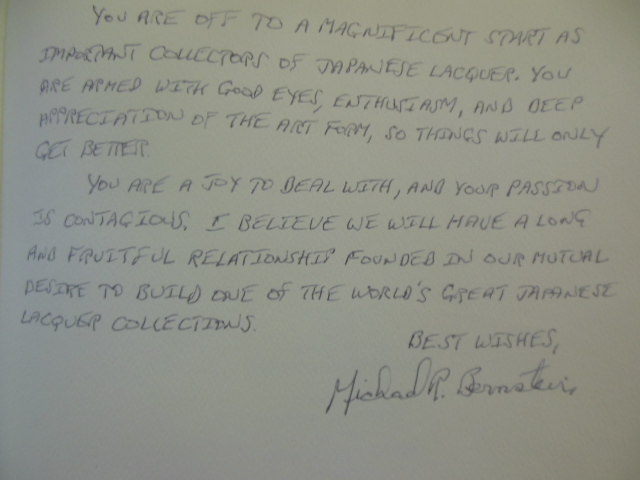 YOU ARE OFF TO A MAGNIFICENT START AS
IMPORTANT COLLECTORS OF JAPANESE LACQUER. YOU
ARE ARMED WITH GOOD EYES, ENTHUSIASM, AND DEEP
APPRECIATION OF THE ART FORM, SO THINGS WILL ONLY
GET BETTER.
YOU ARE A JOY TO DEAL WITH, AND YOUR PASSION
IS CONTAGIOUS. I BELIEVE WE WILL HAVE A LONG
AND FRUITFUL RELATIONSHIP FOUNDED IN OUR MUTUAL
DESIRE TO BUILD ONE OF THE WORLD'S GREAT JAPANESE
LACQUER COLLECTIONS.
BEST WISHES,
Michael R. Bernstein